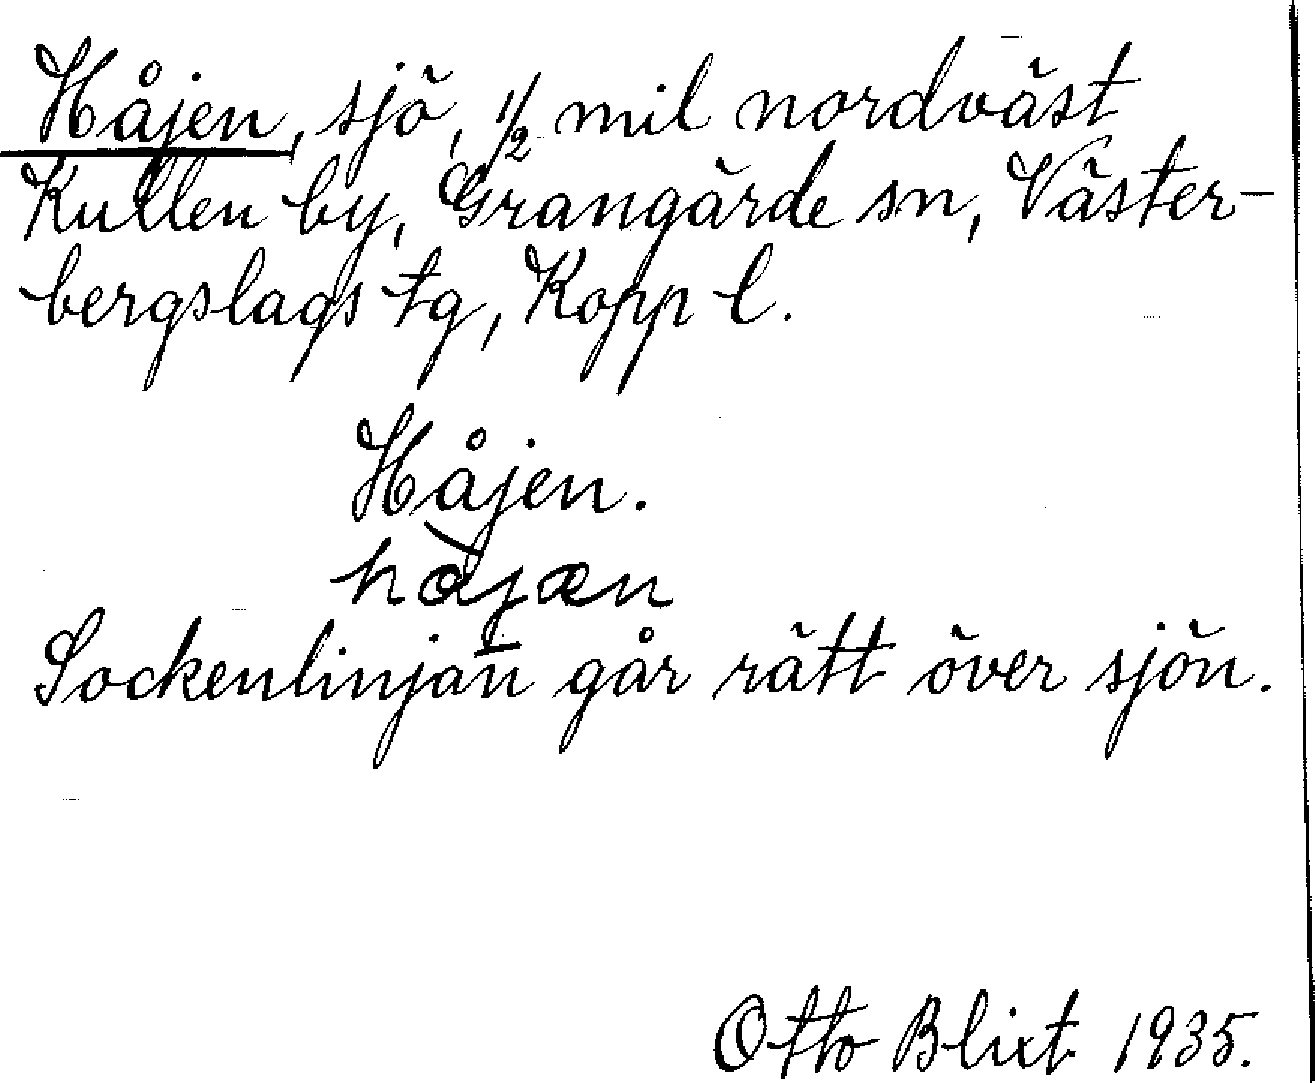 Håjen, sjö, 1/2 mil nordväst
Kullen by, Grangärde sn, Väster-
bergslags tg, Kopp l.
Håjen.
hå̀jæn
Sockenlinjan går rätt över sjön.
Otto Blixt 1935.